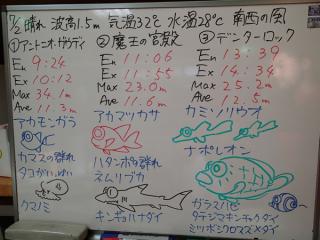 7/2 晴れ 波高1.5m 気温32℃ 水温28℃ 南西の風
①アントニオ・ガウディ
En 9:24
Ex 10:12
Max 34.1m
Ave 11.3m
アカモンガラ
カマスの群れ
タコがいっぱい
クマノミ
②魔王の宮殿
En 11:06
Ex 11:55
Max 23.0m
Ave 11.6m
アカマツカサ
ハタンポの群れ
ネムリブカ
キンギョハナダイ
③デンターロック
En 13:39
Ex 14:34
Max 25.2m
Ave 12.5m
カミソリウオ
ナポレオン
ガラスハゼ
タテジマキンチャクダイ
ミツボシクロスズメダイ